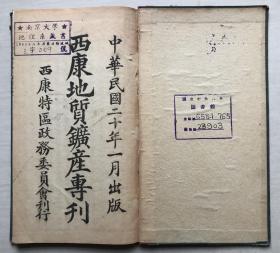 中華民國二十年一月出版
西康地質鑛產專刊
西康特區政務委員會刋行
★南京大學★
地理系藏書
號
圖書館
28903